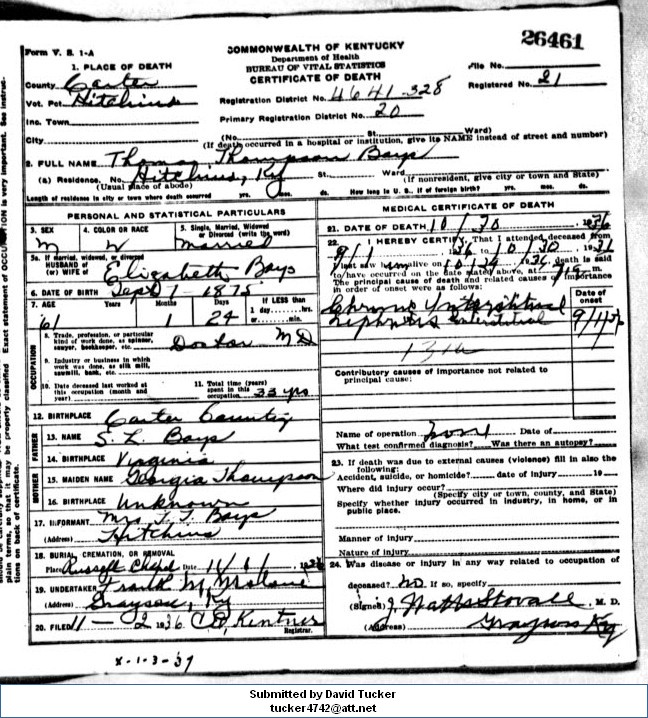 26461
Form V. S. 1-A
COMMONWEALTH OF KENTUCKY
Department of Health
BUREAU OF VITAL STATISTICS
CERTIFICATE OF DEATH
File No.
Registered No. 21
1. PLACE OF DEATH
County Carter
Vot. Pct. Hitchins
Inc. Town
City
Registration District No. 4641-328
Primary Registration District No. 20
(No. St. Ward)
(If death occurred in a hospital or institution, give its NAME instead of street and number)
2. FULL NAME Thomas Thompson Bays
(a) Residence. No. Hitchins, Ky St. Ward
(Usual place of abode) (If nonresident, give city or town and State)
Length of residence in city or town where death occurred yrs. mos. ds. How long in U. S., if of foreign birth? yrs. mos. ds.
PERSONAL AND STATISTICAL PARTICULARS
3. SEX 4. COLOR OR RACE 5. Single, Married, Widowed or Divorced (write the word)
M W Married
5a. If married, widowed, or divorced
HUSBAND of
(or) WIFE of Elizabeth Bays
6. DATE OF BIRTH Sept 1 - 1875
7. AGE Years Months Days If LESS than 1 day hrs. or min.
61 1 24
OCCUPATION
8. Trade, profession, or particular kind of work done, as spinner, sawyer, bookkeeper, etc. Doctor MD
9. Industry or business in which work was done, as silk mill, sawmill, bank, etc.
10. Date deceased last worked at this occupation (month and year)
11. Total time (years) spent in this occupation 33 yrs
12. BIRTHPLACE Carter County
FATHER
13. NAME S. L. Bays
14. BIRTHPLACE Virginia
MOTHER
15. MAIDEN NAME Georgia Thompson
16. BIRTHPLACE Unknown
17. INFORMANT Mrs T. T. Bays
(Address) Hitchins
18. BURIAL, CREMATION, OR REMOVAL
Place Russell Chapel Date 1936
19. UNDERTAKER Frank M Malone
(Address) Grayson, Ky
20. FILED 11-2 1936 Kentner
Registrar.
MEDICAL CERTIFICATE OF DEATH
21. DATE OF DEATH 10/30 1936
22. I HEREBY CERTIFY, That I attended deceased from
9/1 36 to 10/30 1936
I last saw him alive on 10/24 1936, death is said
to have occurred on the date stated above, at m.
The principal cause of death and related causes of importance
in order of onset were as follows:
Date of onset
Chronic Interstitial
Nephritis Interstitial
131a
Contributory causes of importance not related to
principal cause:
Name of operation none Date of
What test confirmed diagnosis? Was there an autopsy?
23. If death was due to external causes (violence) fill in also the
following:
Accident, suicide, or homicide? date of injury 19
Where did injury occur?
(Specify city or town, county, and State)
Specify whether injury occurred in industry, in home, or in
public place.
Manner of injury
Nature of injury
24. Was disease or injury in any way related to occupation of
deceased? no If so, specify
(Signed) J. Watts Stovall M. D.
(Address) Grayson Ky
x-1-3-37
Submitted by David Tucker
tucker4742@att.net